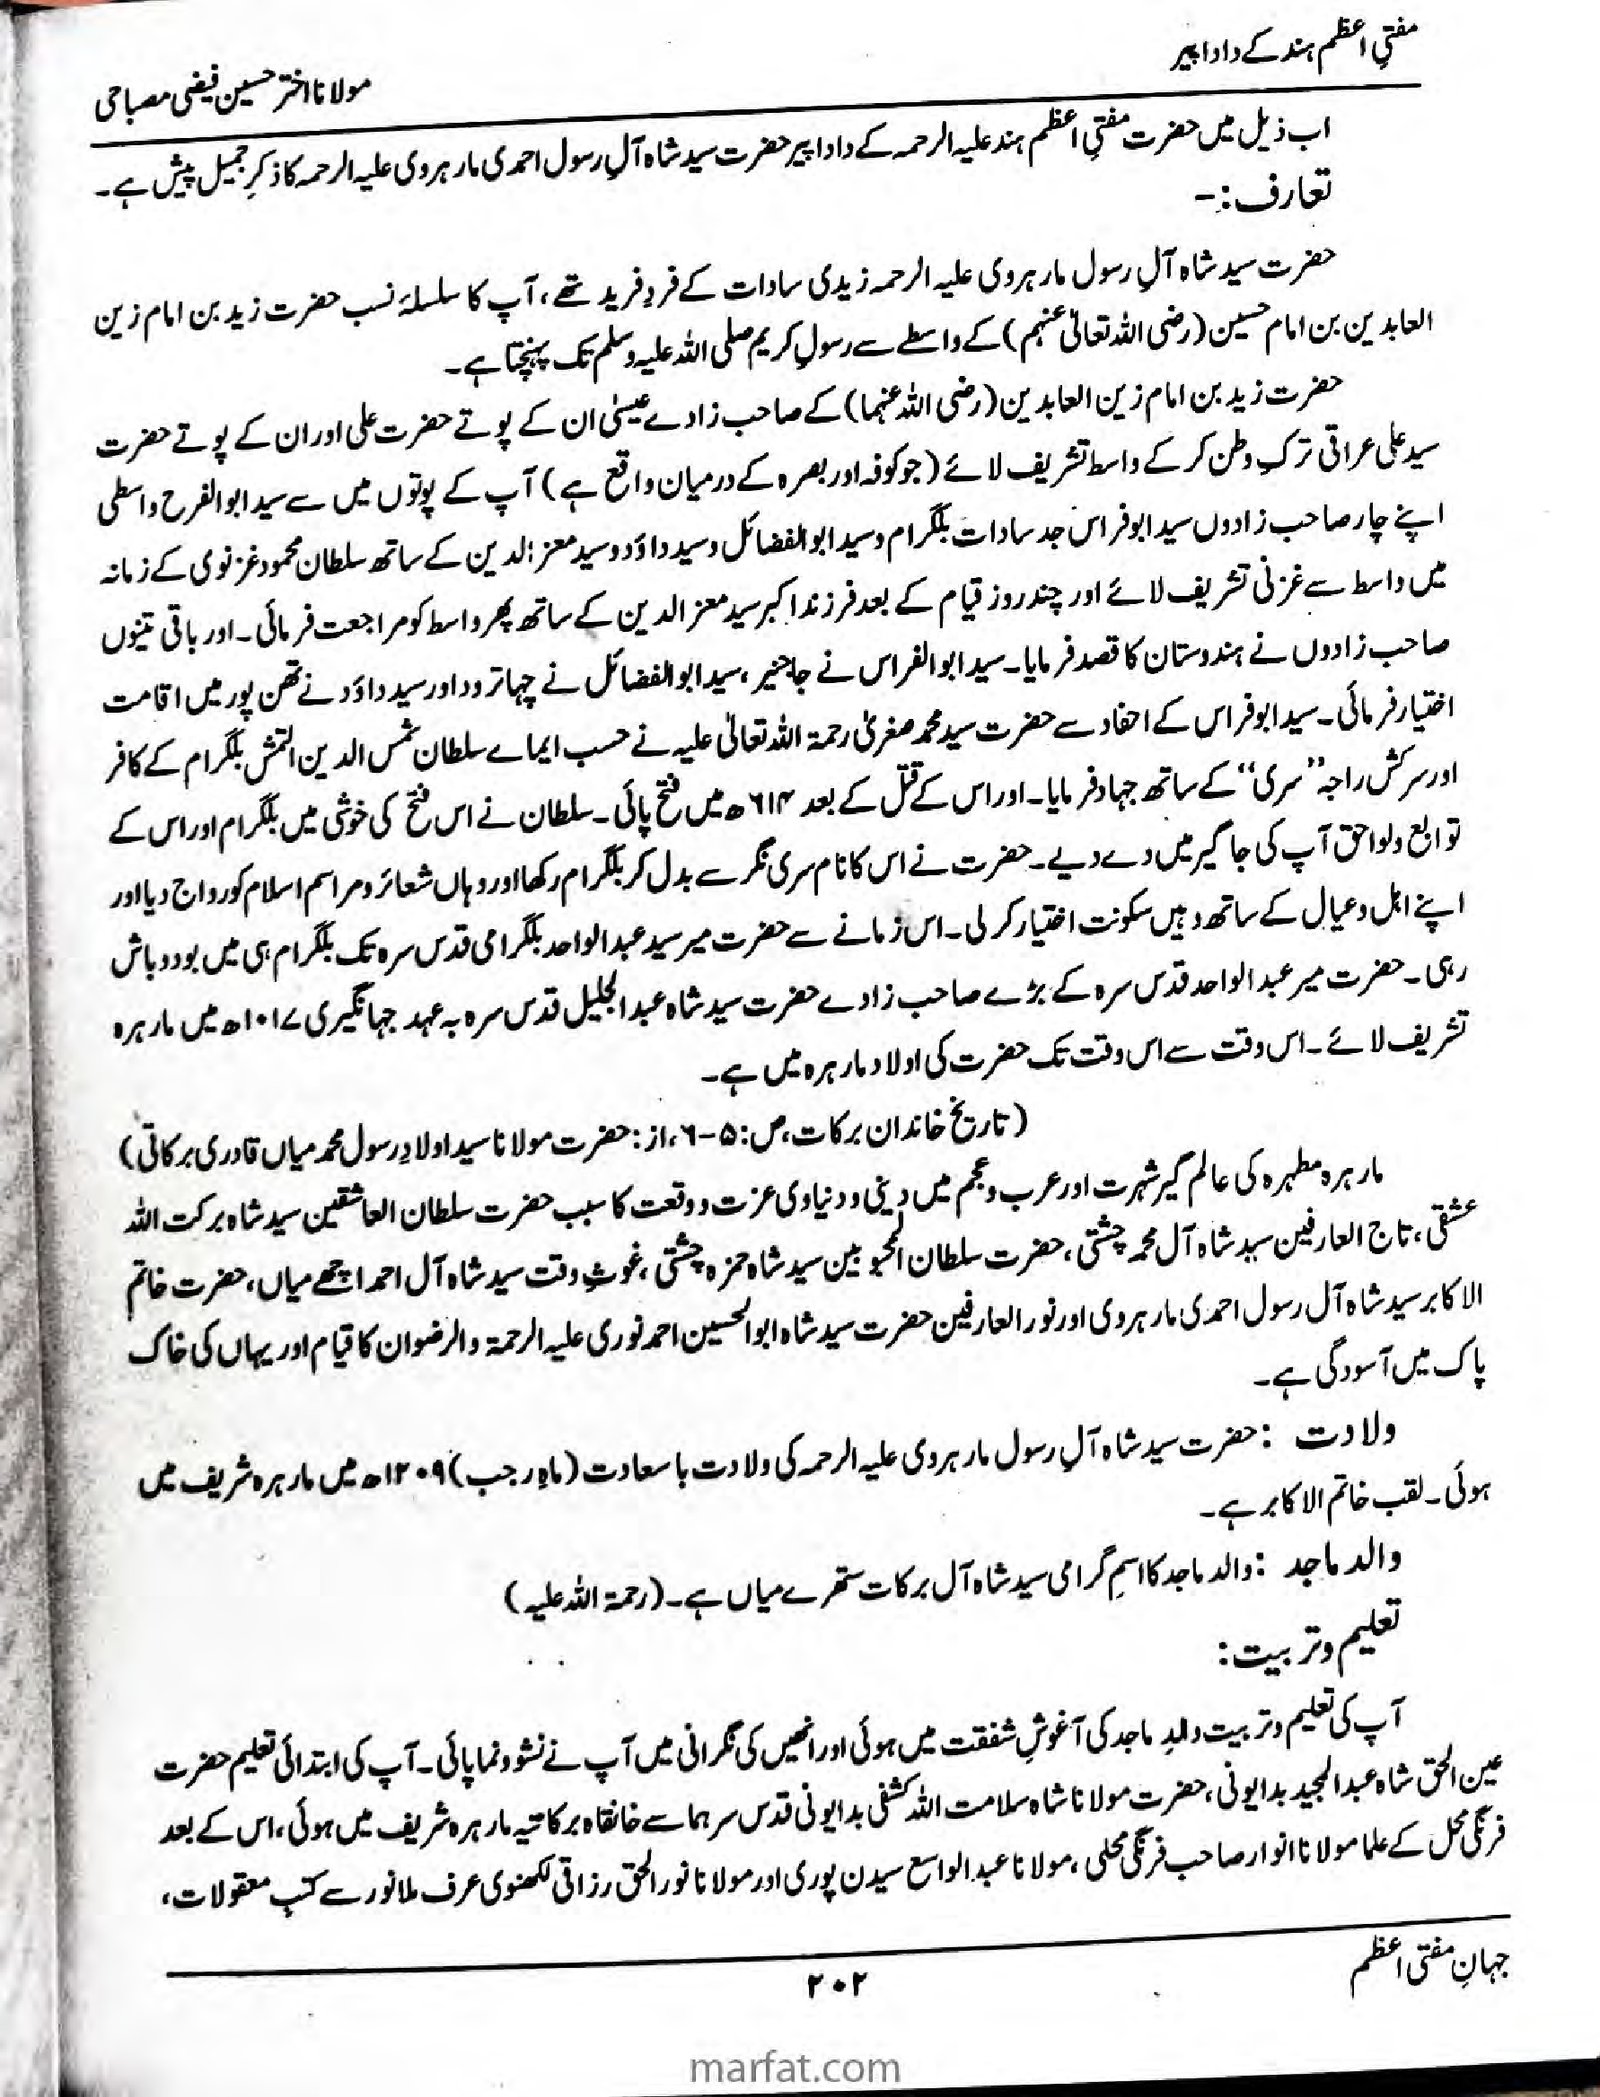 مفتیِ اعظم ہند کے دادا پیر
مولانا اختر حسین فیضی مصباحی
اب ذیل میں حضرت مفتیِ اعظم ہند علیہ الرحمہ کے دادا پیر حضرت سید شاہ آلِ رسول احمدی مارہروی علیہ الرحمہ کا ذکرِ جمیل پیش ہے۔
تعارف:-
حضرت سید شاہ آلِ رسول مارہروی علیہ الرحمہ زیدی سادات کے فردِ فرید تھے، آپ کا سلسلۂ نسب حضرت زید بن امام زین
العابدین بن امام حسین (رضی اللہ تعالیٰ عنہم) کے واسطے سے رسولِ کریم صلی اللہ علیہ وسلم تک پہنچتا ہے۔
حضرت زید بن امام زین العابدین (رضی اللہ عنہما) کے صاحب زادے عیسیٰ ان کے پوتے حضرت علی اور ان کے پوتے حضرت
سید علی عراقی ترکِ وطن کر کے واسط تشریف لائے (جو کوفہ اور بصرہ کے درمیان واقع ہے) آپ کے پوتوں میں سے سید ابوالفرح واسطی
اپنے چار صاحب زادوں سید ابو فراس جد سادات بلگرام و سید ابوالفضائل و سید داؤد و سید معز الدین کے ساتھ سلطان محمود غزنوی کے زمانہ
میں واسط سے غزنی تشریف لائے اور چند روز قیام کے بعد فرزند اکبر سید معز الدین کے ساتھ پھر واسط کو مراجعت فرمائی۔ اور باقی تینوں
صاحب زادوں نے ہندوستان کا قصد فرمایا۔ سید ابوالفراس نے جاجنیر، سید ابوالفضائل نے چہاترود اور سید داؤد نے تھن پور میں اقامت
اختیار فرمائی۔ سید ابو فراس کے احفاد سے حضرت سید محمد صغریٰ رحمۃ اللہ تعالیٰ علیہ نے حسب ایماے سلطان شمس الدین التمش بلگرام کے کافر
اور سرکش راجہ ”سری“ کے ساتھ جہاد فرمایا۔ اور اس کے قتل کے بعد ۶۱۴ھ میں فتح پائی۔ سلطان نے اس فتح کی خوشی میں بلگرام اور اس کے
توابع ولواحق آپ کی جاگیر میں دے دیے۔ حضرت نے اس کا نام سری نگر سے بدل کر بلگرام رکھا اور وہاں شعائر و مراسم اسلام کو رواج دیا اور
اپنے اہل و عیال کے ساتھ وہیں سکونت اختیار کر لی۔ اس زمانے سے حضرت میر سید عبدالواحد بلگرامی قدس سرہ تک بلگرام ہی میں بود و باش
رہی۔ حضرت میر عبدالواحد قدس سرہ کے بڑے صاحب زادے حضرت سید شاہ عبدالجلیل قدس سرہ بہ عہد جہانگیری ۱۰۱۷ھ میں مارہرہ
تشریف لائے۔ اس وقت سے اس وقت تک حضرت کی اولاد مارہرہ میں ہے۔
(تاریخ خاندان برکات، ص: ۵-۶، از: حضرت مولانا سید اولادِ رسول محمد میاں قادری برکاتی)
مارہرہ مطہرہ کی عالم گیر شہرت اور عرب و عجم میں دینی و دنیاوی عزت و وقعت کا سبب حضرت سلطان العاشقین سید شاہ برکت اللہ
عشقی، تاج العارفین سید شاہ آل محمد چشتی، حضرت سلطان المحبوبین سید شاہ حمزہ چشتی، غوثِ وقت سید شاہ آل احمد اچھے میاں، حضرت خاتم
الاکابر سید شاہ آل رسول احمدی مارہروی اور نور العارفین حضرت سید شاہ ابوالحسین احمد نوری علیہ الرحمۃ والرضوان کا قیام اور یہاں کی خاک
پاک میں آسودگی ہے۔
ولادت : حضرت سید شاہ آلِ رسول مارہروی علیہ الرحمہ کی ولادت باسعادت (ماہِ رجب) ۱۲۰۹ھ میں مارہرہ شریف میں
ہوئی۔ لقب خاتم الاکابر ہے۔
والد ماجد : والد ماجد کا اسمِ گرامی سید شاہ آل برکات ستھرے میاں ہے۔ (رحمۃ اللہ علیہ)
تعلیم و تربیت:
آپ کی تعلیم و تربیت والدِ ماجد کی آغوشِ شفقت میں ہوئی اور انھیں کی نگرانی میں آپ نے نشو و نما پائی۔ آپ کی ابتدائی تعلیم حضرت
عین الحق شاہ عبدالمجید بدایونی، حضرت مولانا شاہ سلامت اللہ کشفی بدایونی قدس سرہما سے خانقاہ برکاتیہ مارہرہ شریف میں ہوئی، اس کے بعد
فرنگی محل کے علما مولانا انوار صاحب فرنگی محلی، مولانا عبدالواسع سیدن پوری اور مولانا نور الحق رزاقی لکھنوی عرف ملا نور سے کتبِ معقولات،
جہانِ مفتی اعظم
۲۰۲
marfat.com